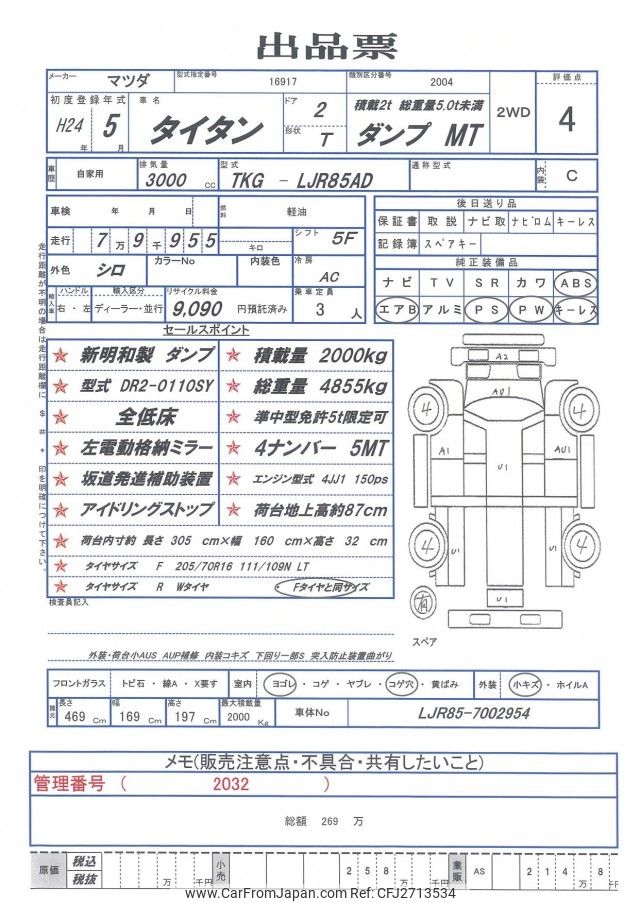 出品票
メーカー マツダ 型式指定番号 16917 類別区分番号 2004 評価点
初度登録年式 車名 ドア 2 積載2t 総重量5.0t未満 2WD 4
H24年 5月 タイタン 形状 T ダンプ MT
車歴 自家用 排気量 3000 cc 型式 TKG - LJR85AD 通称型式 内装 C
車検 年 月 日 燃料 軽油 後日送り品
保証書 取説 ナビ取 ナビロム キーレス
走行 7万9千955 キロ シフト 5F 記録簿 スペアキー
純正装備品
外色 シロ カラーNo 内装色 冷房 AC ナビ TV SR カワ ABS
輸入車 ハンドル 右・左 輸入区分 ディーラー・並行 リサイクル料金 9,090 円預託済み 乗車定員 3 人 エアB アルミ PS PW キーレス
走行距離が不明の場合は走行距離欄に $ # * 印を明確につけて下さい。
セールスポイント
新明和製 ダンプ 積載量 2000kg
型式 DR2-0110SY 総重量 4855kg
全低床 準中型免許5t限定可
左電動格納ミラー 4ナンバー 5MT
坂道発進補助装置 エンジン型式 4JJ1 150ps
アイドリングストップ 荷台地上高約87cm
荷台内寸約 長さ 305 cm×幅 160 cm×高さ 32 cm
タイヤサイズ F 205/70R16 111/109N LT
タイヤサイズ R Wタイヤ ・Fタイヤと同サイズ
A2
AU1
4 4
A1 U1 AU1
4 4
U1 U1
U1
有
スペア
検査員記入
外装・荷台小AUS AUP補修 内装コキズ 下回り一部S 突入防止装置曲がり
フロントガラス トビ石・線A・X要す 室内 ヨゴレ・コゲ・ヤブレ・コゲ穴・黄ばみ 外装 小キズ・ホイルA
諸元 長さ 469 Cm 幅 169 Cm 高さ 197 Cm 最大積載量 2000 Kg 車体No LJR85-7002954
メモ(販売注意点・不具合・共有したいこと)
管理番号 ( 2032 )
総額 269 万
原価 税込 税抜 万 千円 小売 258 万 千円 業販 AS 214 万 8 千円
www.CarFromJapan.com Ref: CFJ2713534